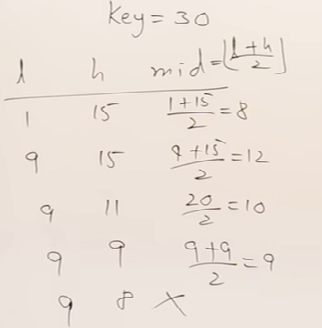 Key = 30
l h mid = ⌊(l+h)/2⌋
1 15 (1+15)/2 = 8
9 15 (9+15)/2 = 12
9 11 20/2 = 10
9 9 (9+9)/2 = 9
9 8 ×